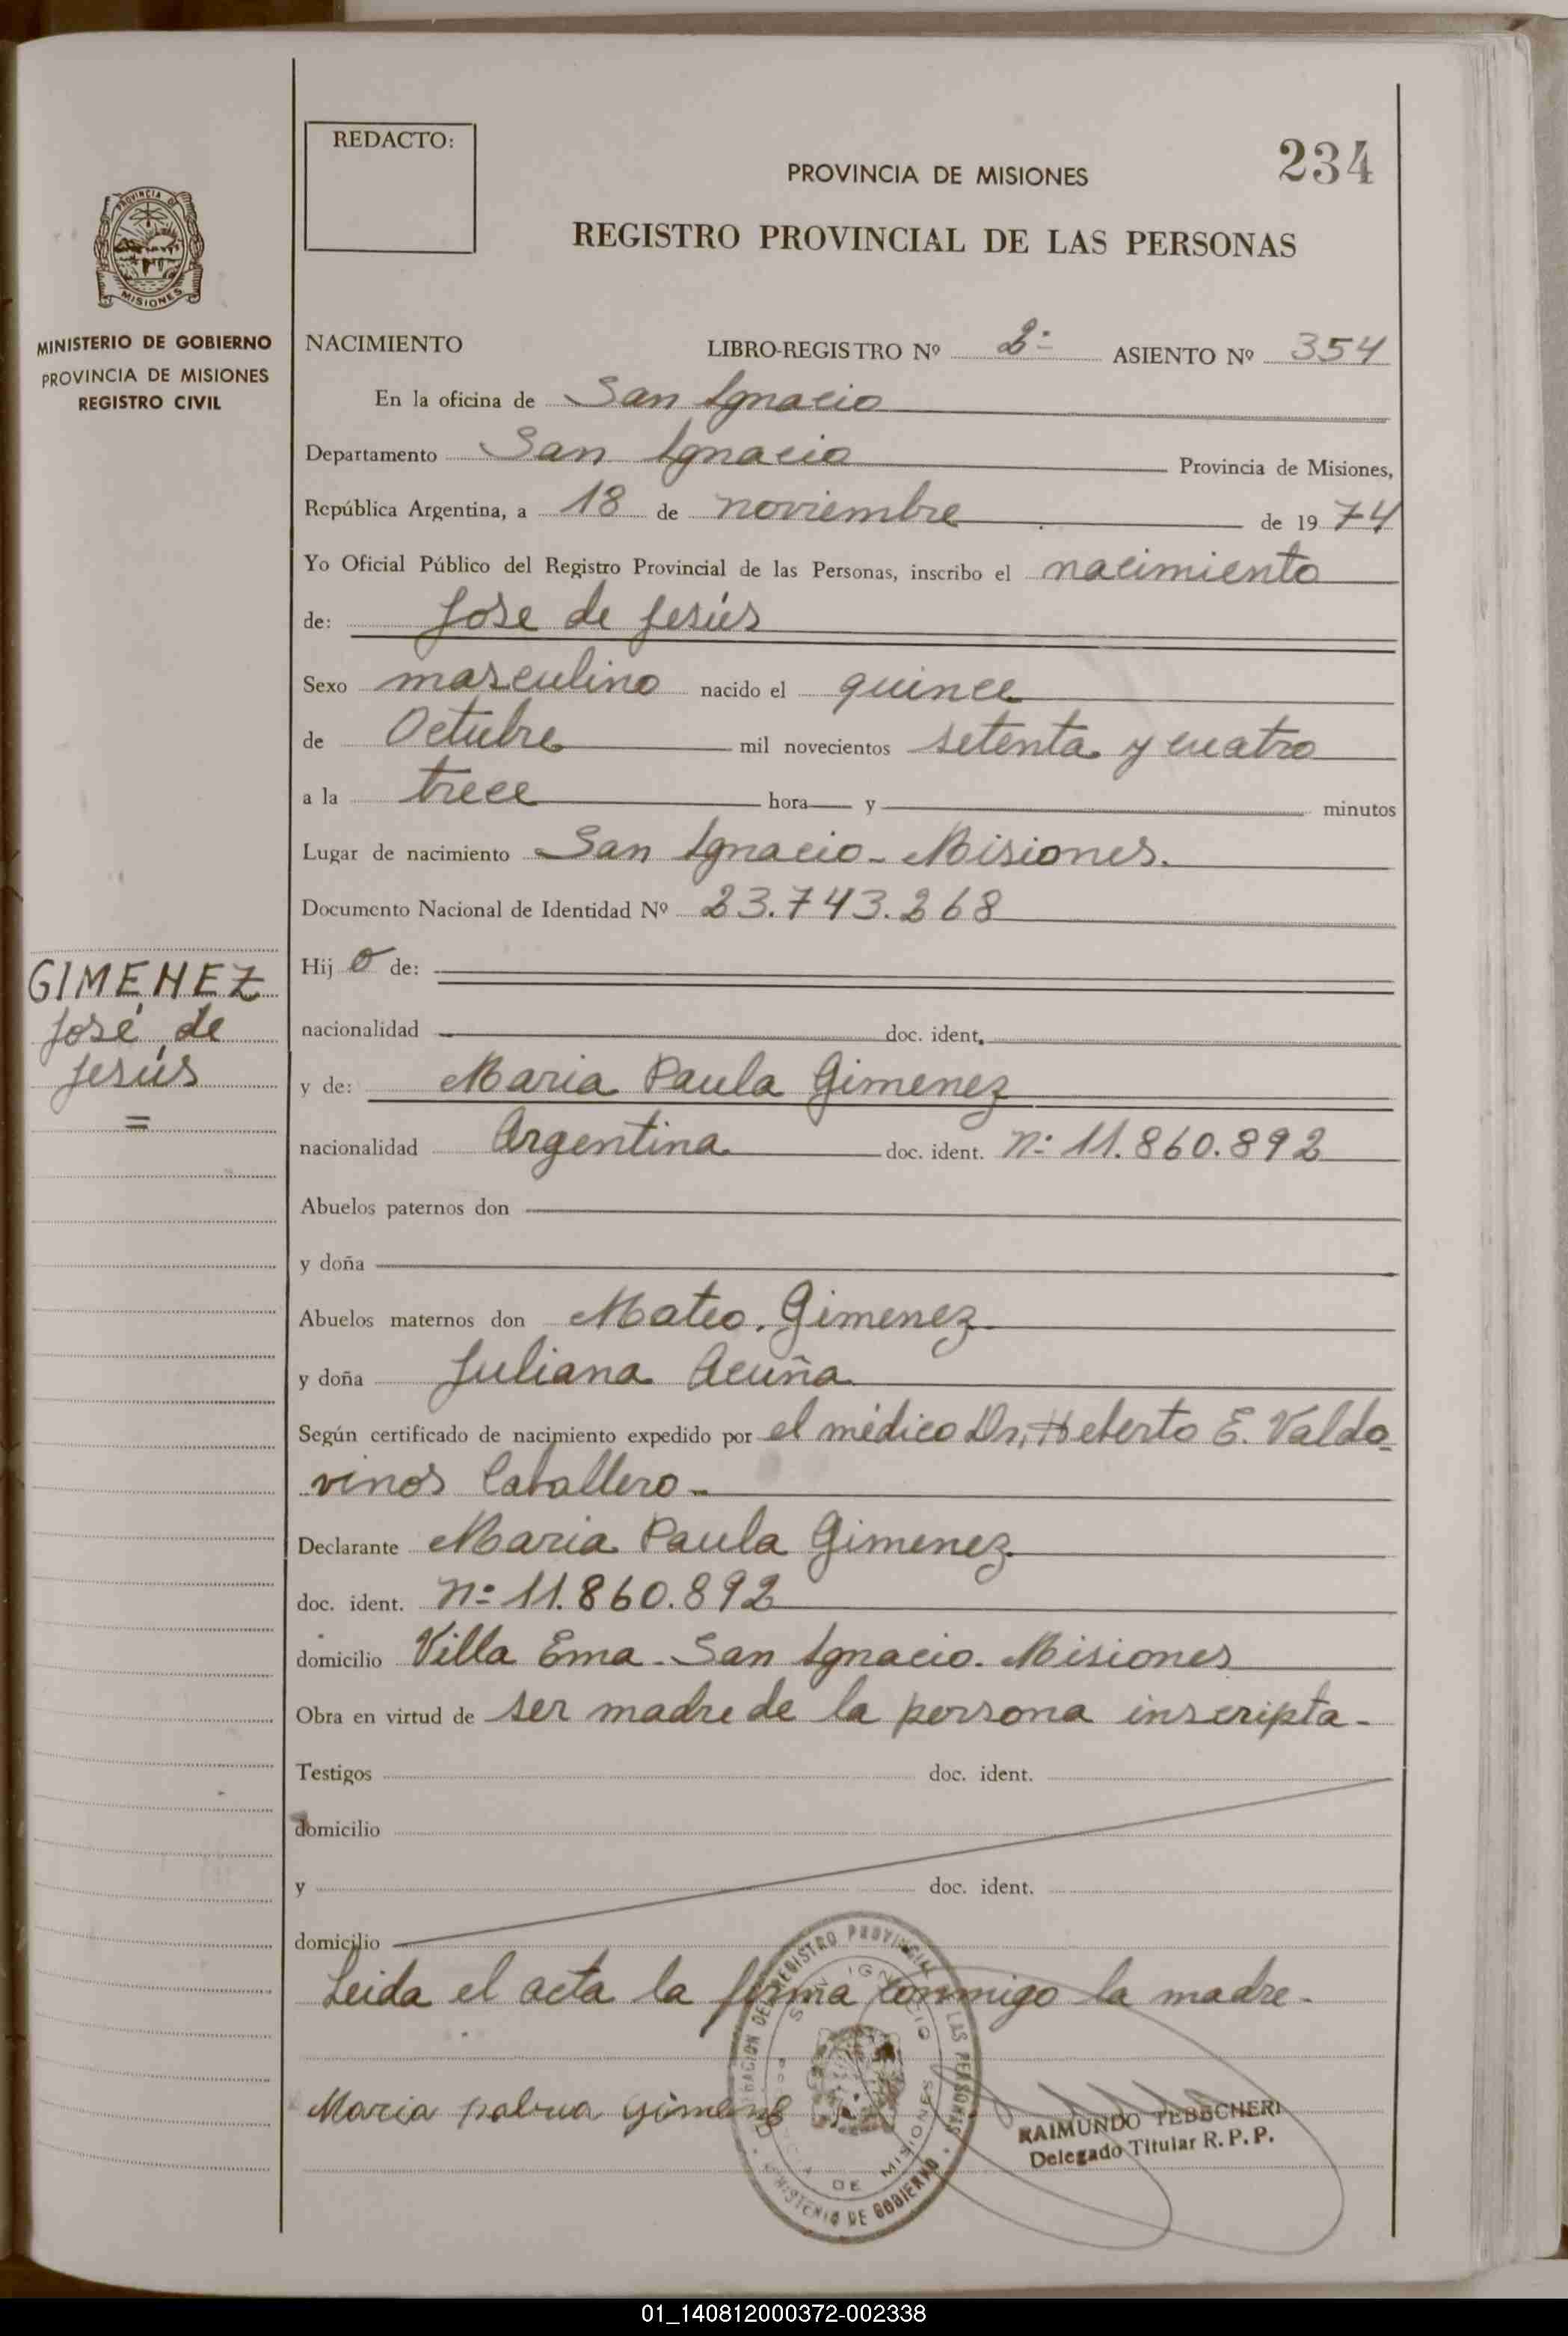 REDACTO:
234
PROVINCIA DE MISIONES
REGISTRO PROVINCIAL DE LAS PERSONAS
PROVINCIA DE
MISIONES
MINISTERIO DE GOBIERNO
PROVINCIA DE MISIONES
REGISTRO CIVIL
NACIMIENTO LIBRO-REGISTRO Nº 2º ASIENTO Nº 354
En la oficina de San Ignacio
Departamento San Ignacio Provincia de Misiones,
República Argentina, a 18 de noviembre de 19 74
Yo Oficial Público del Registro Provincial de las Personas, inscribo el nacimiento
de: Jose de Jesús
Sexo masculino nacido el quince
de Octubre mil novecientos setenta y cuatro
a la trece hora y minutos
Lugar de nacimiento San Ignacio - Misiones.
Documento Nacional de Identidad Nº 23.743.268
Hij o de:
GIMENEZ
José de
Jesús
=
nacionalidad doc. ident.
y de: Maria Paula Gimenez
nacionalidad Argentina doc. ident. nº 11.860.892
Abuelos paternos don
y doña
Abuelos maternos don Mateo. Gimenez.
y doña Juliana Acuña
Según certificado de nacimiento expedido por el médico Dr. Heberto E. Valdo-
vinos Caballero -
Declarante Maria Paula Gimenez
doc. ident. nº 11.860.892
domicilio Villa Ema - San Ignacio. Misiones
Obra en virtud de ser madre de la persona inscripta -
Testigos doc. ident.
domicilio
y doc. ident.
domicilio
Leida el acta la firma conmigo la madre -
Maria
RAIMUNDO TEBECHERI
Delegado Titular R. P. P.
REGISTRO PROVINCIAL LAS PERSONAS
SAN IGNACIO
DE MISIONES
MINISTERIO DE GOBIERNO
01_140812000372-002338